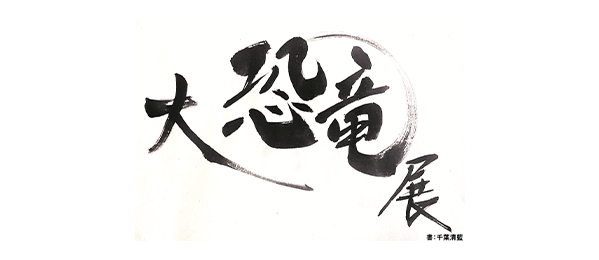 大恐竜展
書:千葉清藍